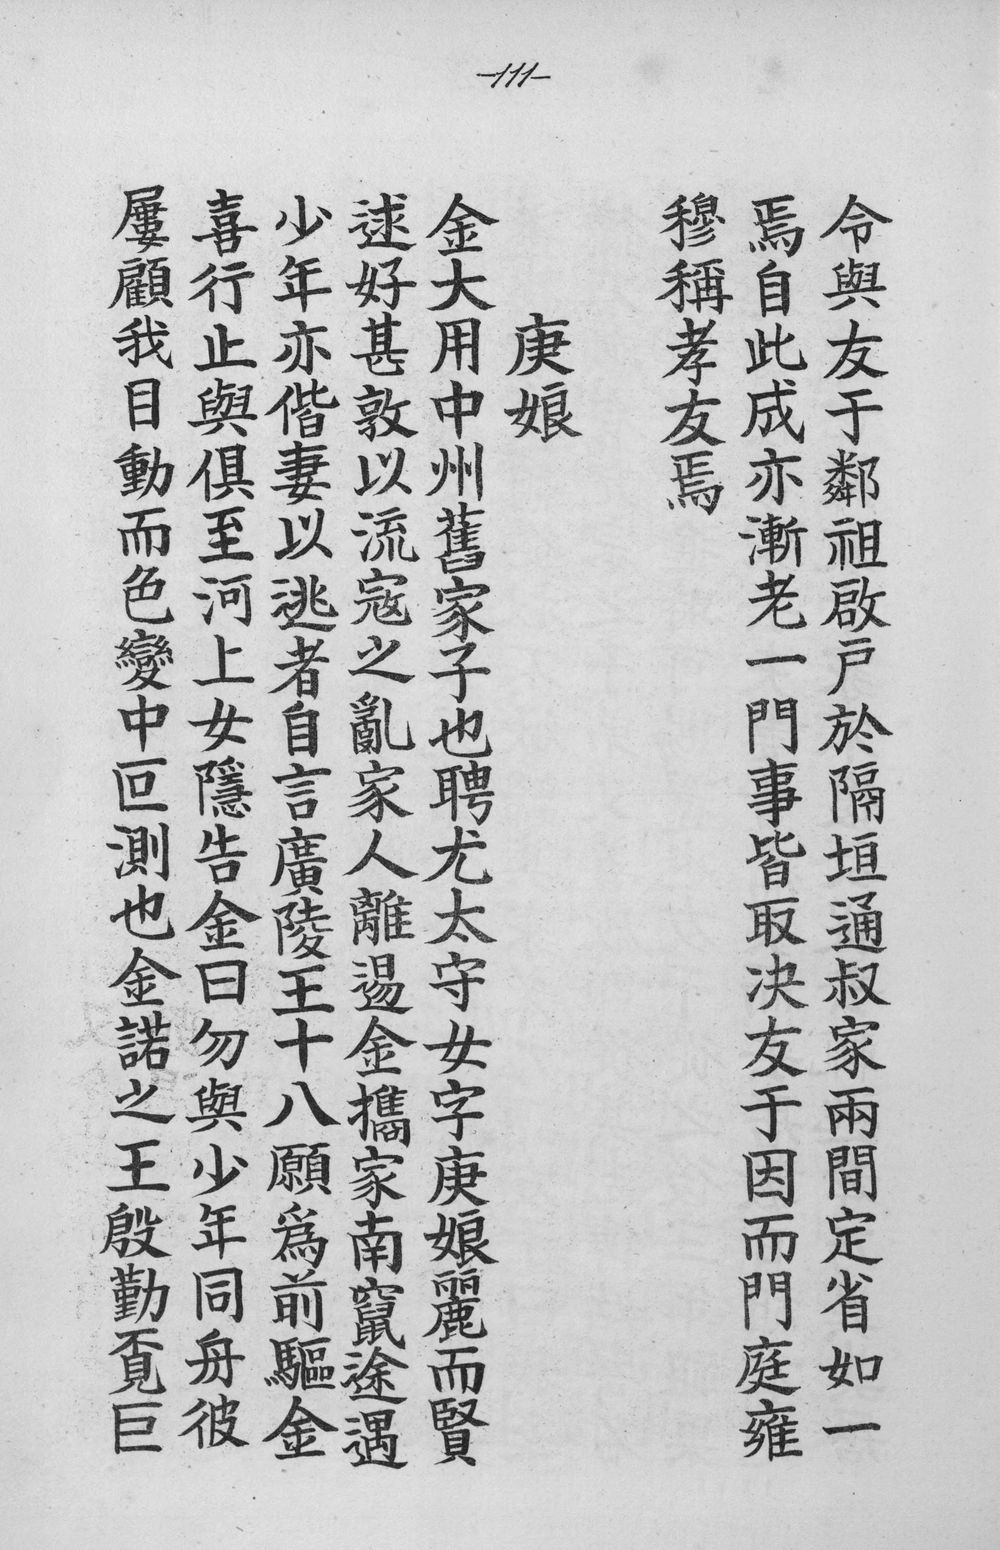 -111-
令與友于鄰祖啟戶於隔垣通叔家兩間定省如一
焉自此成亦漸老一門事皆取决友于因而門庭雍
穆稱孝友焉
庚娘
金大用中州舊家子也聘尤太守女字庚娘麗而賢
逑好甚敦以流寇之亂家人離逷金攜家南竄途遇
少年亦偕妻以逃者自言廣陵王十八願爲前驅金
喜行止與俱至河上女隱告金曰勿與少年同舟彼
屢顧我目動而色變中叵測也金諾之王殷勤覔巨